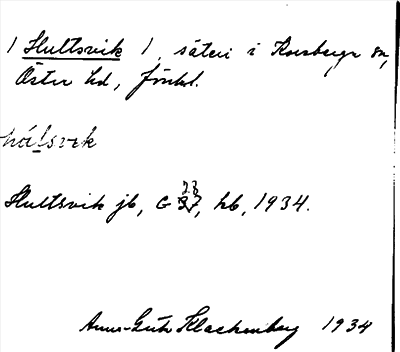 1 Hultsvik 1, säteri i Korsberga sn,
Öster hd, Jönk.l.
húl̠svɩk
Hultsvik jb, G 23 37, kb, 1934.
Anna-Greta Klackenberg 1934